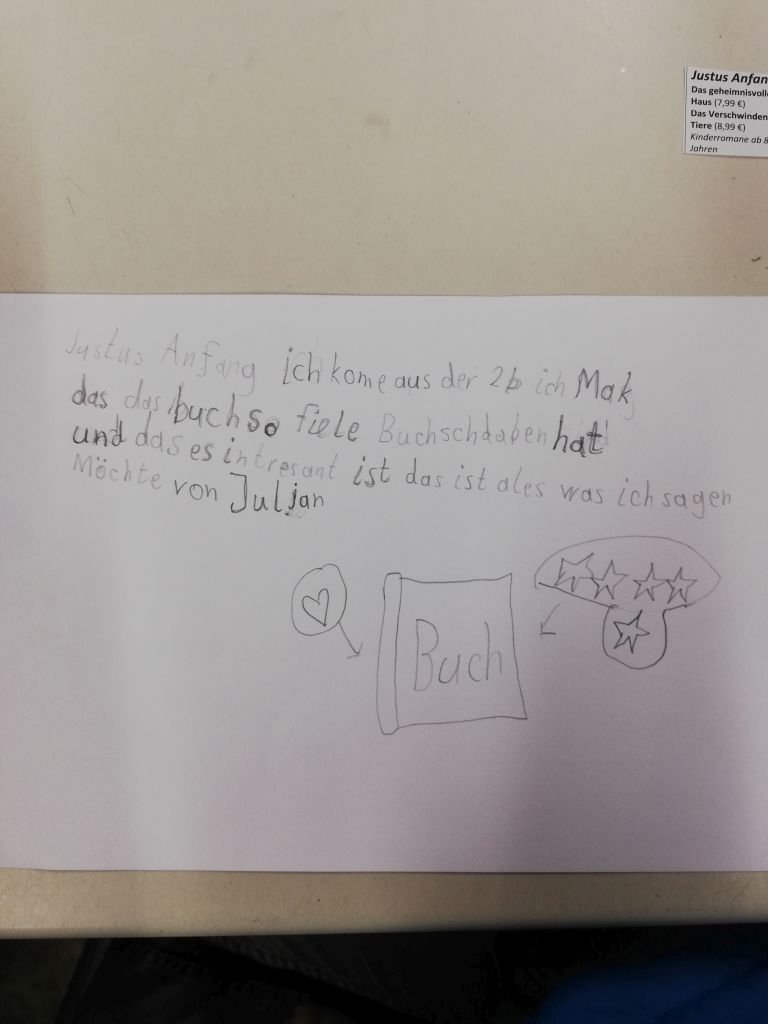 Justus Anfan
Das geheimnisvoll
Haus (7,99 €)
Das Verschwinden
Tiere (8,99 €)
Kinderromane ab 8
Jahren
Justus Anfang ich kome aus der 2b ich Mak
das das buch so fiele Buchschdaben hat
und das es intresant ist das ist ales was ich sagen
Möchte von Julian
Buch